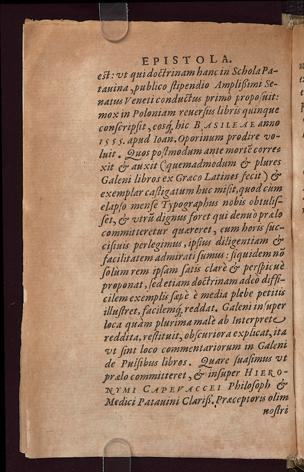 EPISTOLA.
est: vt qui doctrinam hanc in Schola Pa-
tauina, publico stipendio Amplißimi Se-
natus Veneti conductus primò proposuit:
mox in Poloniam reuersus libris quinque
conscripsit, eosq́; hic BASILEAE anno
1555. apud Ioan. Oporinum prodire vo-
luit. Quos postmodum ante mortē corre-
xit & auxit (quemadmodum & plures
Galeni libros ex Græco Latinos fecit) &
exemplar castigatum huc misit, quod cùm
elapso mense Typographus nobis obtulis-
set, & vtrū dignus foret qui denuò prælo
committeretur quæreret, cum horis suc-
cisiuis perlegimus, ipsius diligentiam &
facilitatem admirati sumus: siquidem nō
solùm rem ipsam satis clarè & perspicuè
proponat, sed etiam doctrinam adeò diffi-
cilem exemplis sæpè è media plebe petitis
illustret, facilemq́; reddat. Galeni insuper
loca quàm plurima malè ab Interprete
reddita, restituit, obscuriora explicat, ita
vt sint loco commentariorum in Galeni
de Pulsibus libros. Quare suasimus vt
prælo committeret, & insuper HIERO-
NYMI CAPEVACCEI Philosoph &
Medici Patauini Clariß. Præceptoris olim
nostri